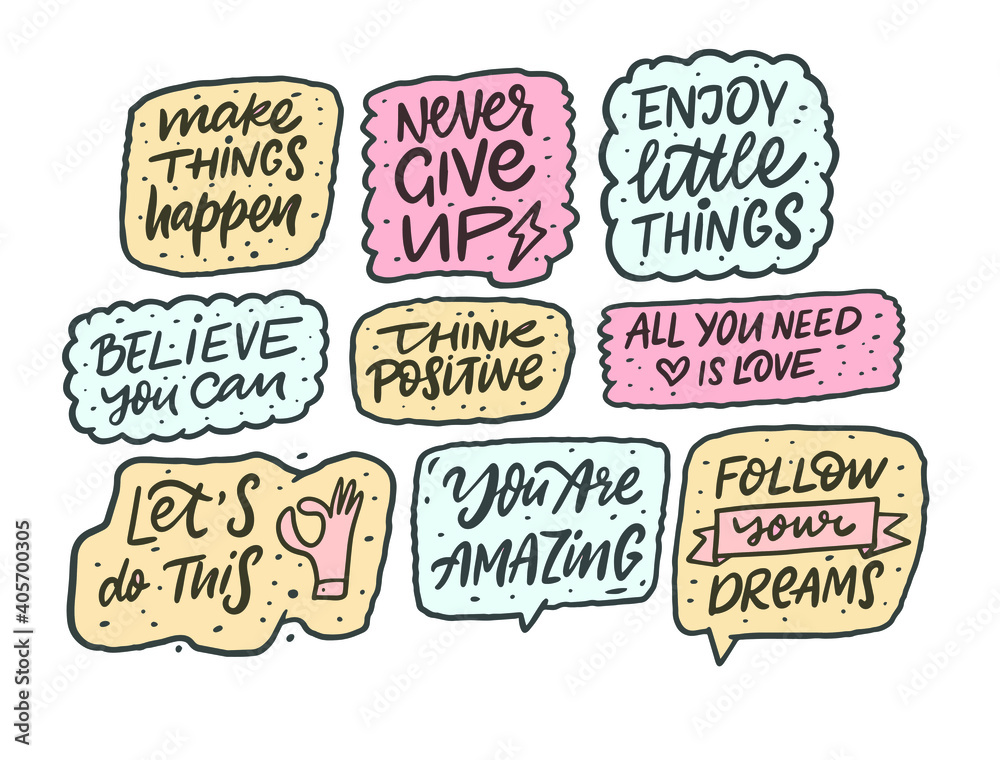 make
THINGS
happen
NEVER
GIVE
UP
ENJOY
little
THINGS
BELIEVE
you can
THINK
POSITIVE
ALL YOU NEED
IS LOVE
LET'S
do THIS
You Are
AMAZING
FOLLOW
your
DREAMS
Adobe Stock | #405700305